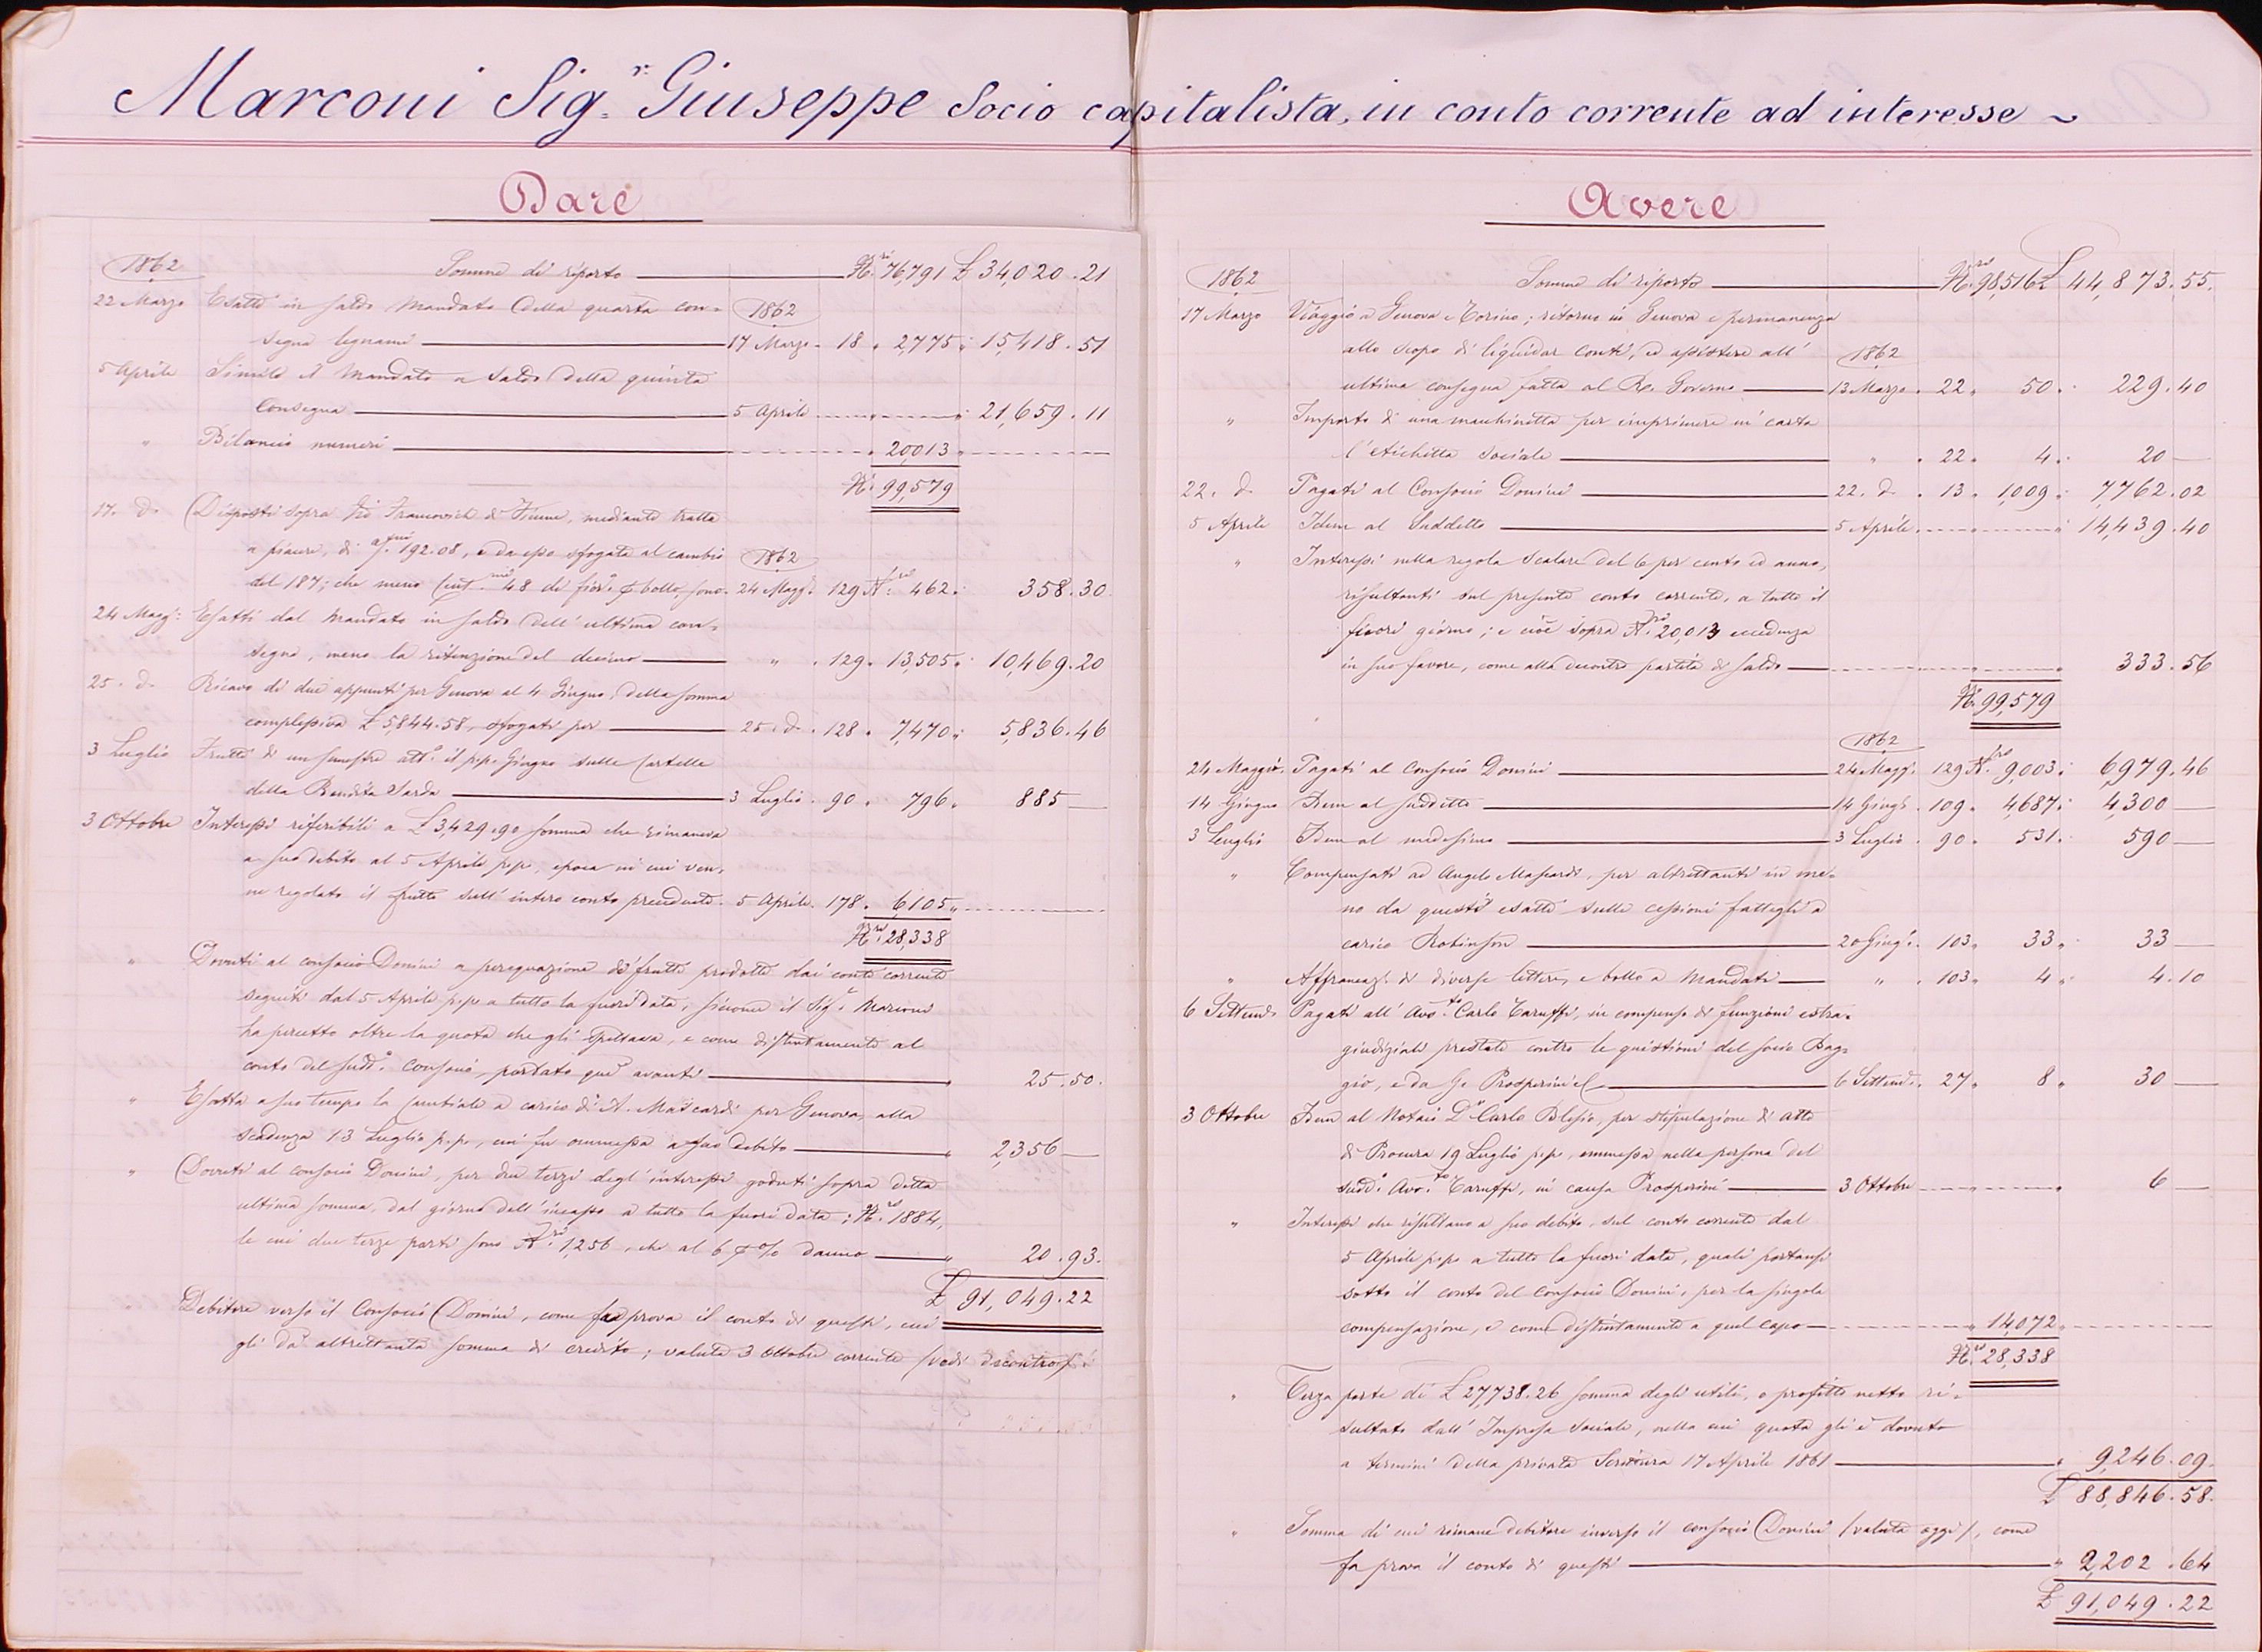 Marconi Sig.r Giuseppe Socio capitalista, in conto corrente ad interesse ~
Dare
1862 Somme di riporto N.ri 76,791 £ 34,020.21
22 Marzo Esatte in saldo Mandato della quarta con= 1862
segna legnami 17 Marzo 18 2,775 15,418.51
5 Aprile Simile il Mandato a saldo della quinta
Consegna 5 Aprile 21,659.11
" Bilancio numeri 20,013
N.ri 99,579
17. d.o Disposti sopra Francovich di Fiume, mediante tratta
a piacere, di 192.08, e da esso sfogata al cambio 1862
del 187; che meno Cent.mi 48 di fior. p bollo, sono 24 Magg.o 129 N.ri 462 358.30
24 Magg.o Esatti dal Mandato in saldo dell' ultima con=
segna, meno la ritenzione del decimo " 129 13,505 10,469.20
25. d.o Ricavo di due appunti per Genova al 4 Giugno, della somma
complessiva £ 5,844.58, sfogati per 25. d.o 128 7,470 5,836.46
3 Luglio Frutto di un semestre att.o il p.p. Giugno sulle Cartelle
della Rendita Sarda 3 Luglio 90 796 885 —
3 Ottobre Interessi riferibili a £ 3,429.90 somma che rimaneva
a suo debito al 5 Aprile p.p., epoca in cui ven=
ne regolato il frutto sull' intero conto precedente 5 Aprile 178 6,105
N.ri 28,338
" Dovuti al consocio Donini a perequazione di frutti prodotti dai conti correnti
seguiti dal 5 Aprile p.p. a tutto la fuori data, siccome il Sig.r Marconi
ha percetto oltre la quota che gli spettava, e come distintamente al
conto del sudd.o Consocio, portato qui avanti 25.50.
" Esatta a suo tempo la Cambiale a carico di A. Mascardi per Genova, alla
scadenza 13 Luglio p.p., cui fu ommessa a suo debito 2,356 —
" Dovuti al consocio Donini, per due terzi degl' interessi goduti sopra detta
ultima somma, dal giorno dell' incasso a tutto la fuori data; N.ri 1884,
le cui due terze parti sono N.ri 1,256, che al 6 p % danno 20.93.
£ 91,049.22
Debitore verso il Consocio Donini, come fa prova il conto di questi, cui
gli dà altrettanta somma di credito; valuta 3 Ottobre corrente (vedi discontro)
Avere
1862 Somme di riporto N.ri 98,516 £ 44,873.55.
17 Marzo Viaggio a Genova e Torino; ritorno in Genova e permanenza
allo scopo di liquidar conti, ed assistere all' 1862
ultima consegna fatta al R.o Governo 13 Marzo 22 50 229.40
" Importo di una macchinetta per imprimere in carta
l'etichetta sociale " 22 4 20 —
22. d.o Pagati al Consocio Donini 22. d.o 13 1,009 7,762.02
5 Aprile Idem al Suddetto 5 Aprile 14,439.40
" Interessi nella regola scalare del 6 per cento ed anno,
risultanti sul presente conto corrente, a tutto il
fuori giorno; e cioè sopra N.ri 20,013 eccedenza
in suo favore, come alla discontro partita di saldo 333.56
N.ri 99,579
1862
24 Maggio Pagati al Consocio Donini 24 Magg.o 129 N.ri 9,003 6,979.46
14 Giugno Idem al suddetto 14 Giug.o 109 4,687 4,300 —
3 Luglio Idem al medesimo 3 Luglio 90 531 590 —
" Compensati ad Angelo Mascardi, per altrettanti in me=
no da questi esatti sulle cessioni fattegli a
carico Robinson 20 Giug.o 103 33 33 —
" Affrancaz.e di diverse lettere, e bollo a Mandati " 103 4 4.10
6 Settemb. Pagati all' Avv.to Carlo Taruffi, in compenso di funzioni estra=
giudiziali prestate contro le quistioni del socio Bag=
gio, e da G. Prosperini 6 Settemb. 27 8 30 —
3 Ottobre Idem al Notaio D.r Carlo, per stipulazione di atto
di Procura 19 Luglio p.p., emmessa nella persona del
sudd.o Avv.to Taruffi, in causa Prosperini 3 Ottobre 6 —
" Interessi che risultano a suo debito, sul conto corrente dal
5 Aprile p.p. a tutto la fuori data, quali portansi
sotto il conto del consocio Donini, per la singola
compensazione, e come distintamente a quel capo 14,072
N.ri 28,338
" Terza parte di £ 27,738.26 somma degli utili, o profitto netto ri=
sultato dall' Impresa Sociale, nella cui quota gli è dovuto
a termini della privata Scrittura 17 Aprile 1861 9,246.09
£ 88,846.58.
" Somma di cui rimane debitore inverso il consocio Donini (valuta oggi), come
fa prova il conto di questi 2,202.64
£ 91,049.22